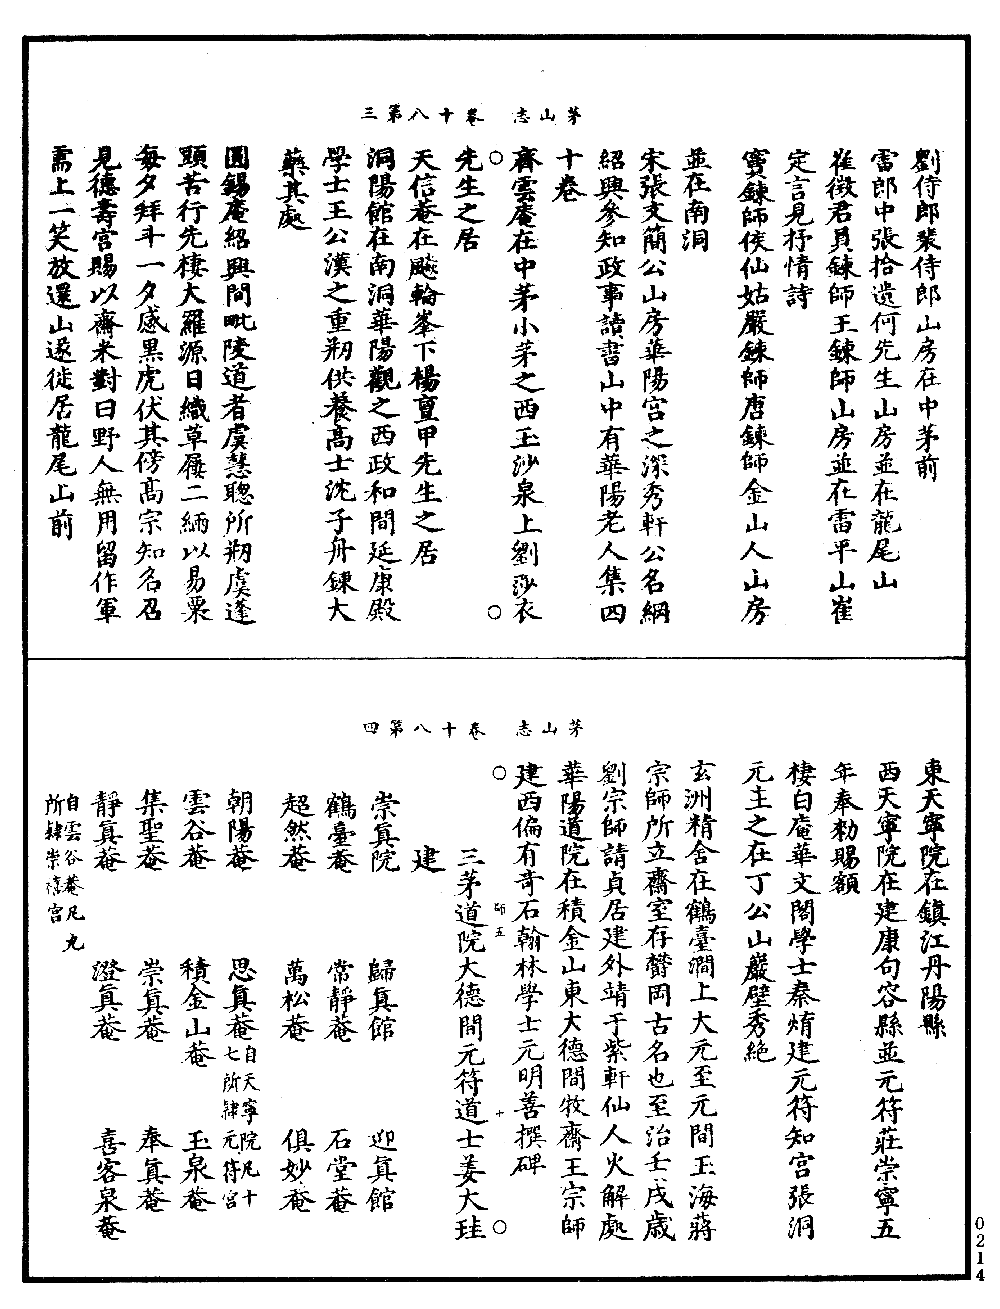 茅山志　卷十八第三
劉侍郎裴侍郎山房在中茅前
雷郎中張拾遺何先生山房並在龍尾山
崔徵君員鍊師王鍊師山房並在雷平山崔
定言見抒情詩
竇鍊師侯仙姑嚴鍊師唐鍊師金山人山房
並在南洞
宋張文簡公山房華陽宮之深秀軒公名綱
紹興參知政事讀書山中有華陽老人集四
十卷
齊雲庵在中茅小茅之西玉沙泉上劉莎衣
先生之居
天信菴在飈輪峯下楊亶甲先生之居
洞陽館在南洞華陽觀之西政和間延康殿
學士王公漢之重剏供養高士沈子舟鍊大
藥其處
圓錫庵紹興間毗陵道者虞慧聰所剏虞蓬
頭苦行先棲大羅源日織草屨二緉以易粟
每夕拜斗一夕感黑虎伏其傍高宗知名召
見德壽宮賜以齋米對曰野人無用留作軍
需上一笑放還山遂徙居龍尾山前
茅山志　卷十八第四
東天寧院在鎮江丹陽縣
西天寧院在建康句容縣並元符莊崇寧五
年奉勑賜額
棲白庵華文閣學士秦焴建元符知宮張洞
元主之在丁公山巖壁秀絶
玄洲精舍在鶴臺澗上大元至元間玉海蔣
宗師所立齋室存欝岡古名也至治壬戌歲
劉宗師請貞居建外靖于紫軒仙人火解處
華陽道院在積金山東大德間牧齋王宗師
建西偏有奇石翰林學士元明善撰碑
師五
十
三茅道院大德間元符道士姜大珪
建
崇真院　歸真館　迎真館
鶴臺菴　常靜菴　石堂菴
超然菴　萬松菴　俱妙菴
朝陽菴　思真菴自天寧院凡十七所隷元符宮
雲谷菴　積金山菴　玉泉菴
集聖菴　崇真菴　奉真菴
靜真菴　澄真菴　喜客泉菴
自雲谷菴凡九所隷崇禧宮
0214